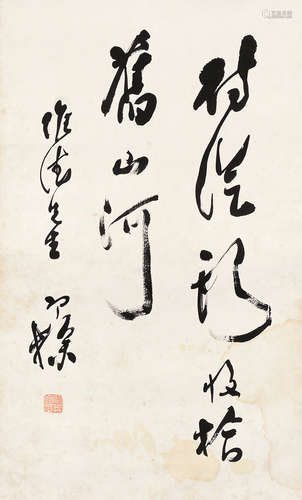 待從頭收拾
舊山河
維清先生